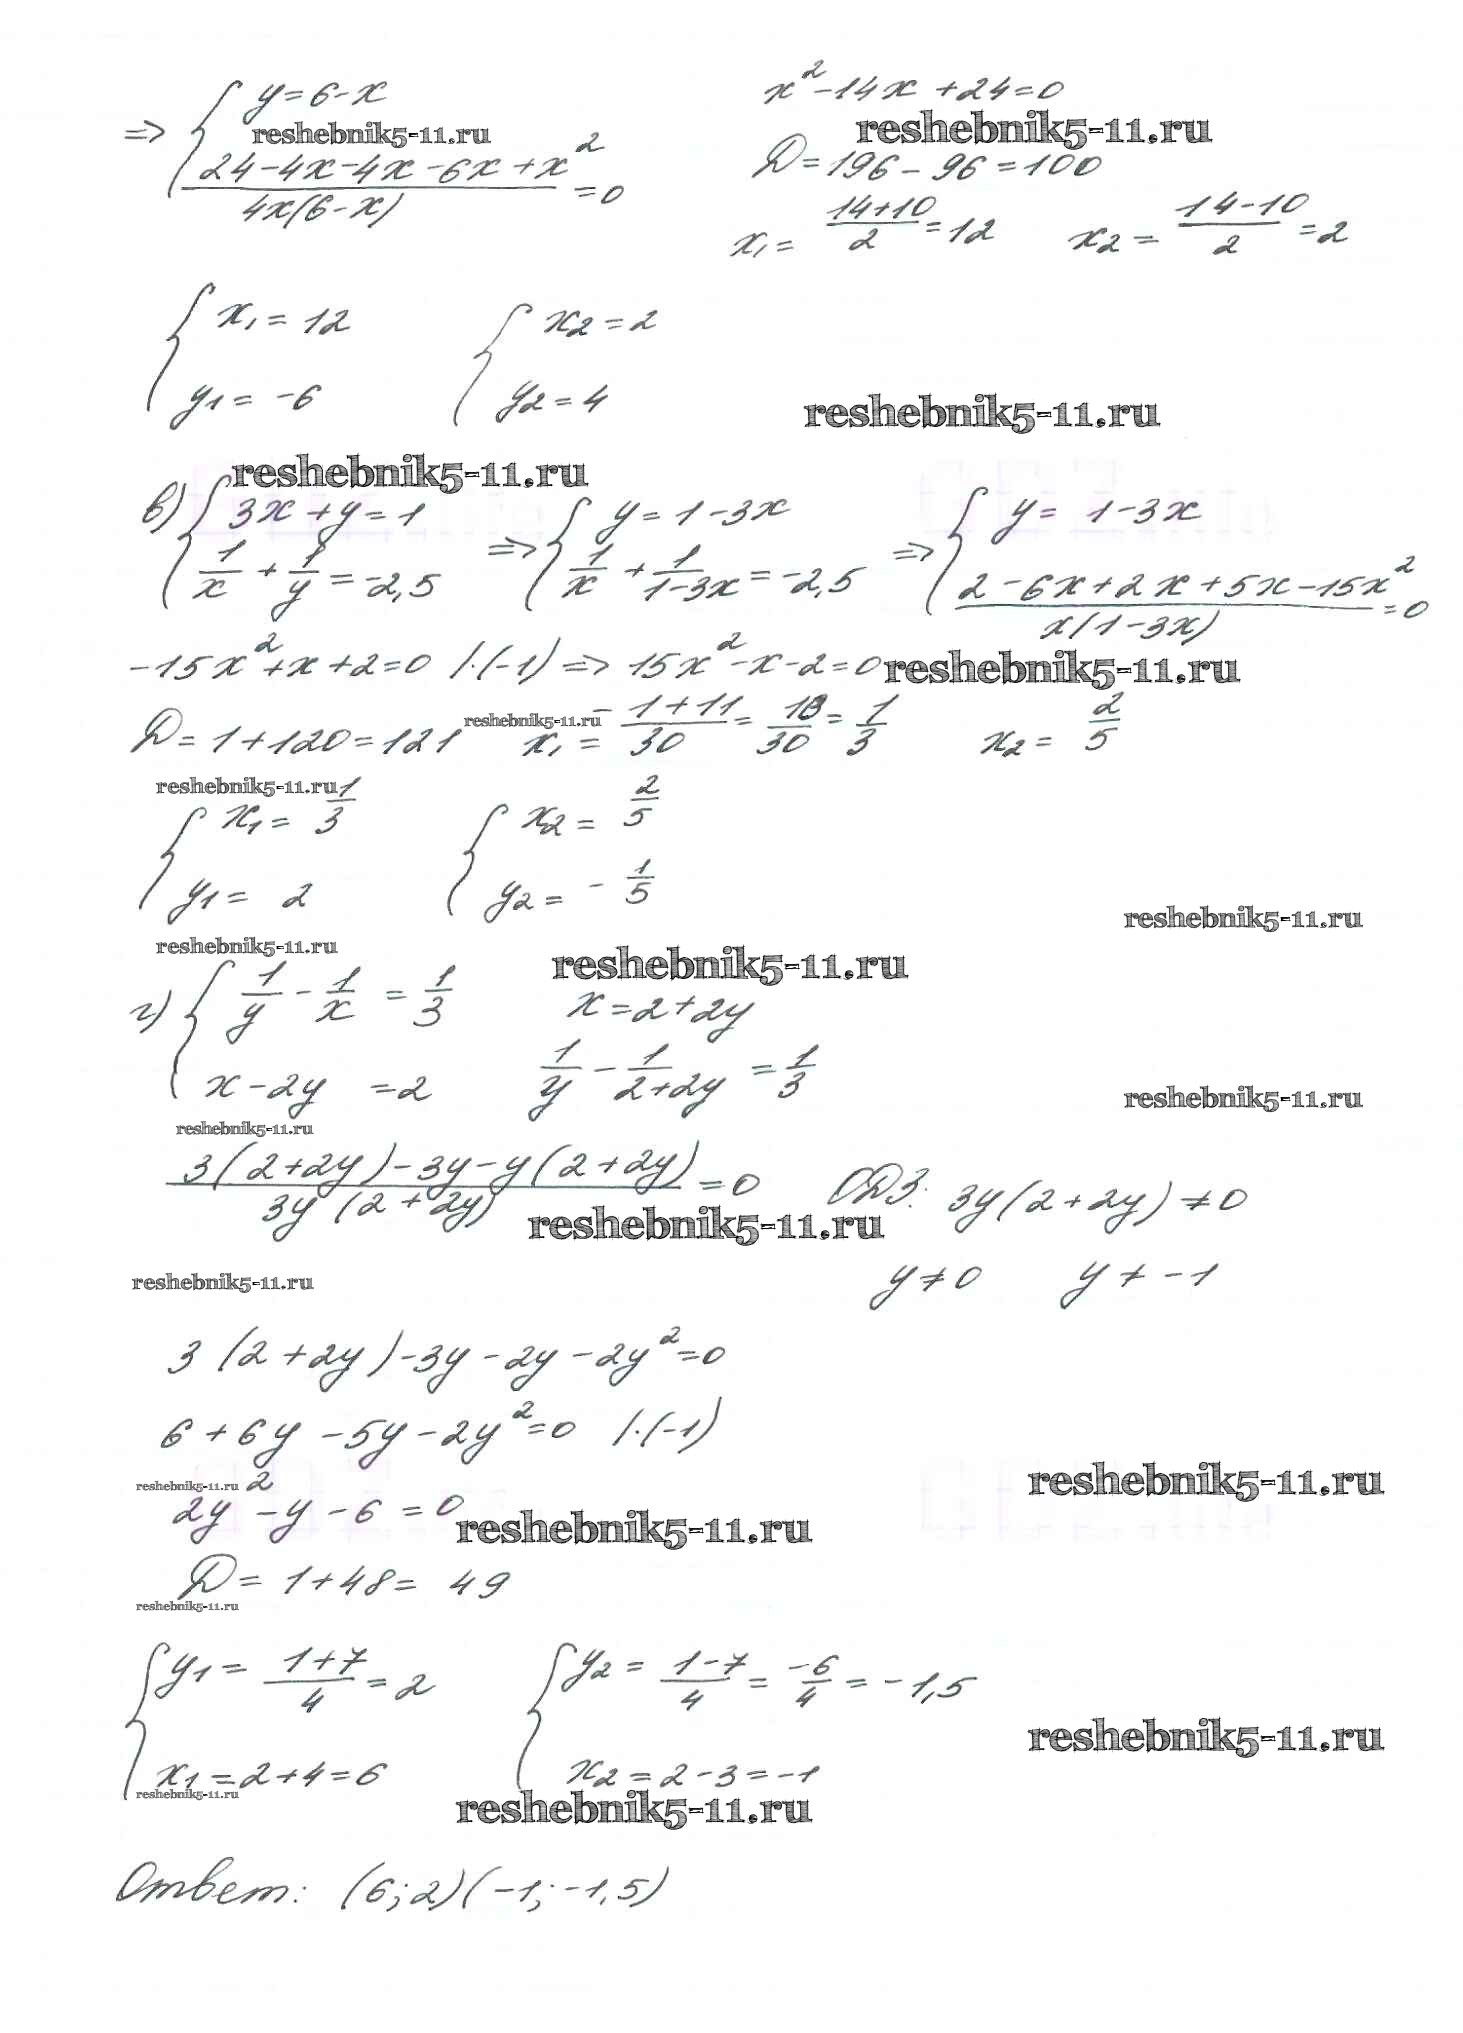 => { y = 6 - x    x² - 14x + 24 = 0
reshebnik5-11.ru    reshebnik5-11.ru
(24 - 4x - 4x - 6x + x²) / 4x(6 - x) = 0    D = 196 - 96 = 100
x₁ = (14 + 10)/2 = 12    x₂ = (14 - 10)/2 = 2
{ x₁ = 12    { x₂ = 2
y₁ = -6    y₂ = 4    reshebnik5-11.ru
reshebnik5-11.ru
в) { 3x + y = 1    => { y = 1 - 3x    => { y = 1 - 3x
1/x + 1/y = -2,5    1/x + 1/(1 - 3x) = -2,5    (2 - 6x + 2x + 5x - 15x²) / x(1 - 3x) = 0
-15x² + x + 2 = 0 /·(-1) => 15x² - x - 2 = 0 reshebnik5-11.ru
D = 1 + 120 = 121    reshebnik5-11.ru    x₁ = -(1 + 11)/30 = 10/30 = 1/3    x₂ = 2/5
reshebnik5-11.ru
{ x₁ = 1/3    { x₂ = 2/5
y₁ = 2    y₂ = -1/5
reshebnik5-11.ru
reshebnik5-11.ru    reshebnik5-11.ru
г) { 1/y - 1/x = 1/3    x = 2 + 2y
x - 2y = 2    1/y - 1/(2 + 2y) = 1/3
reshebnik5-11.ru
reshebnik5-11.ru
(3(2 + 2y) - 3y - y(2 + 2y)) / 3y(2 + 2y) = 0    ОДЗ: 3y(2 + 2y) ≠ 0
reshebnik5-11.ru
reshebnik5-11.ru    y ≠ 0    y ≠ -1
3(2 + 2y) - 3y - 2y - 2y² = 0
6 + 6y - 5y - 2y² = 0 /·(-1)
reshebnik5-11.ru    reshebnik5-11.ru
2y² - y - 6 = 0 reshebnik5-11.ru
D = 1 + 48 = 49
reshebnik5-11.ru
{ y₁ = (1 + 7)/4 = 2    { y₂ = (1 - 7)/4 = -6/4 = -1,5
reshebnik5-11.ru
x₁ = 2 + 4 = 6    x₂ = 2 - 3 = -1
reshebnik5-11.ru    reshebnik5-11.ru
Ответ: (6; 2) (-1; -1,5)